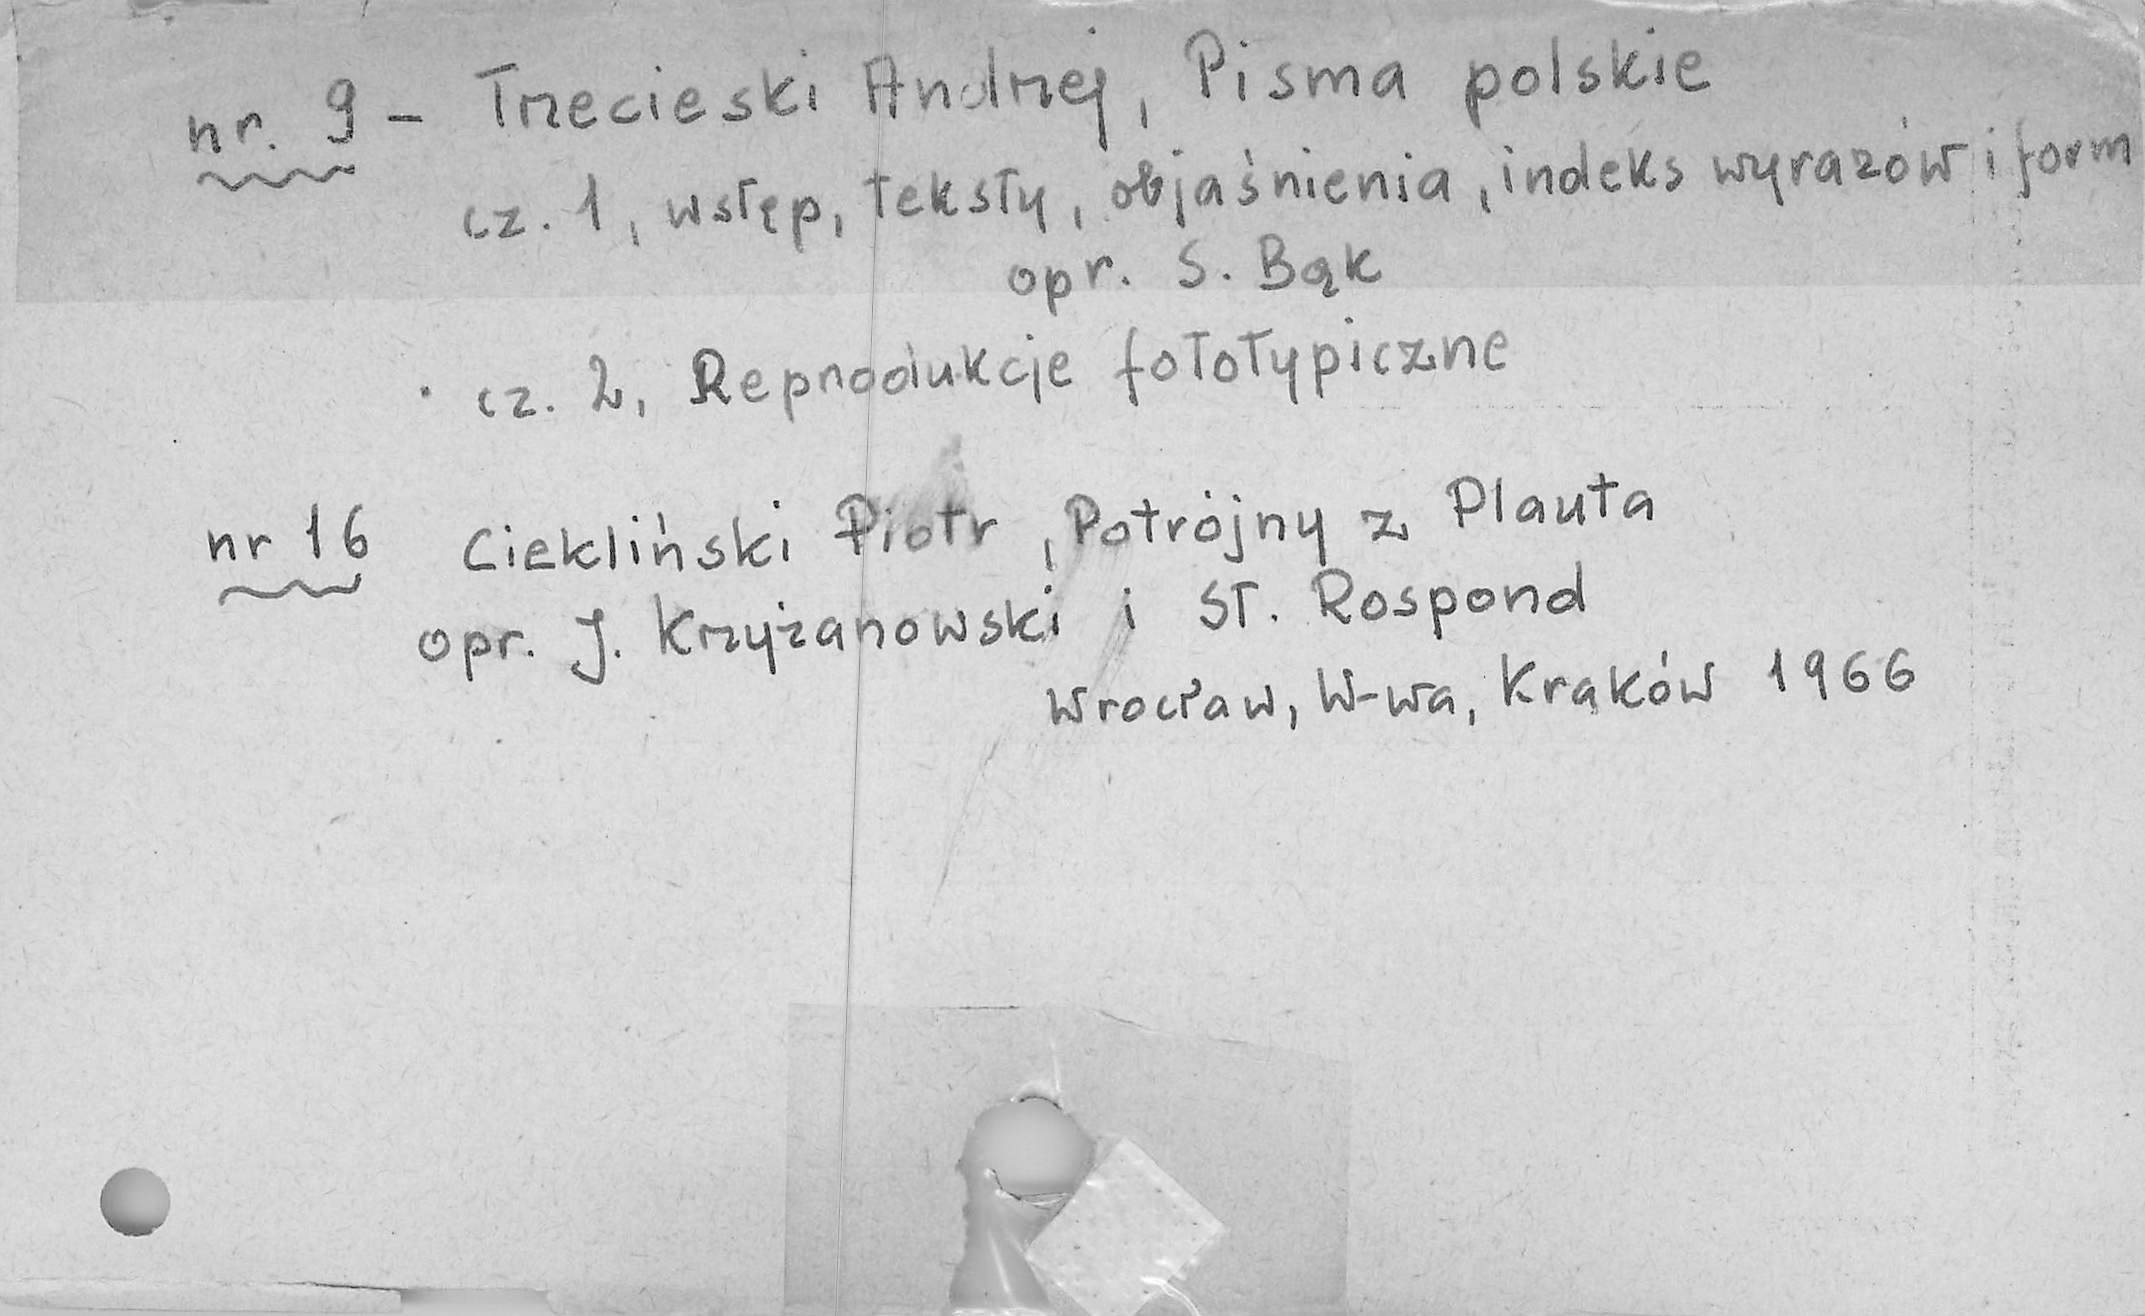 nr. 9 - Trzecieski Andrzej, Pisma polskie
cz. 1, wstęp, teksty, objaśnienia, indeks wyrazów i form
opr. S. Bąk
cz. 2, Reprodukcje fototypiczne
nr 16 Ciekliński Piotr, Potrójny z Plauta
opr. J. Krzyżanowski i St. Rospond
Wrocław, W-wa, Kraków 1966